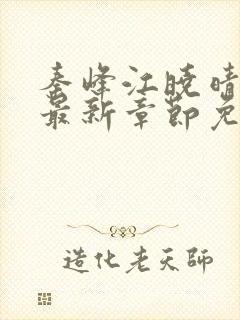 秦峰江晓晴
最新章节免
造化老天師